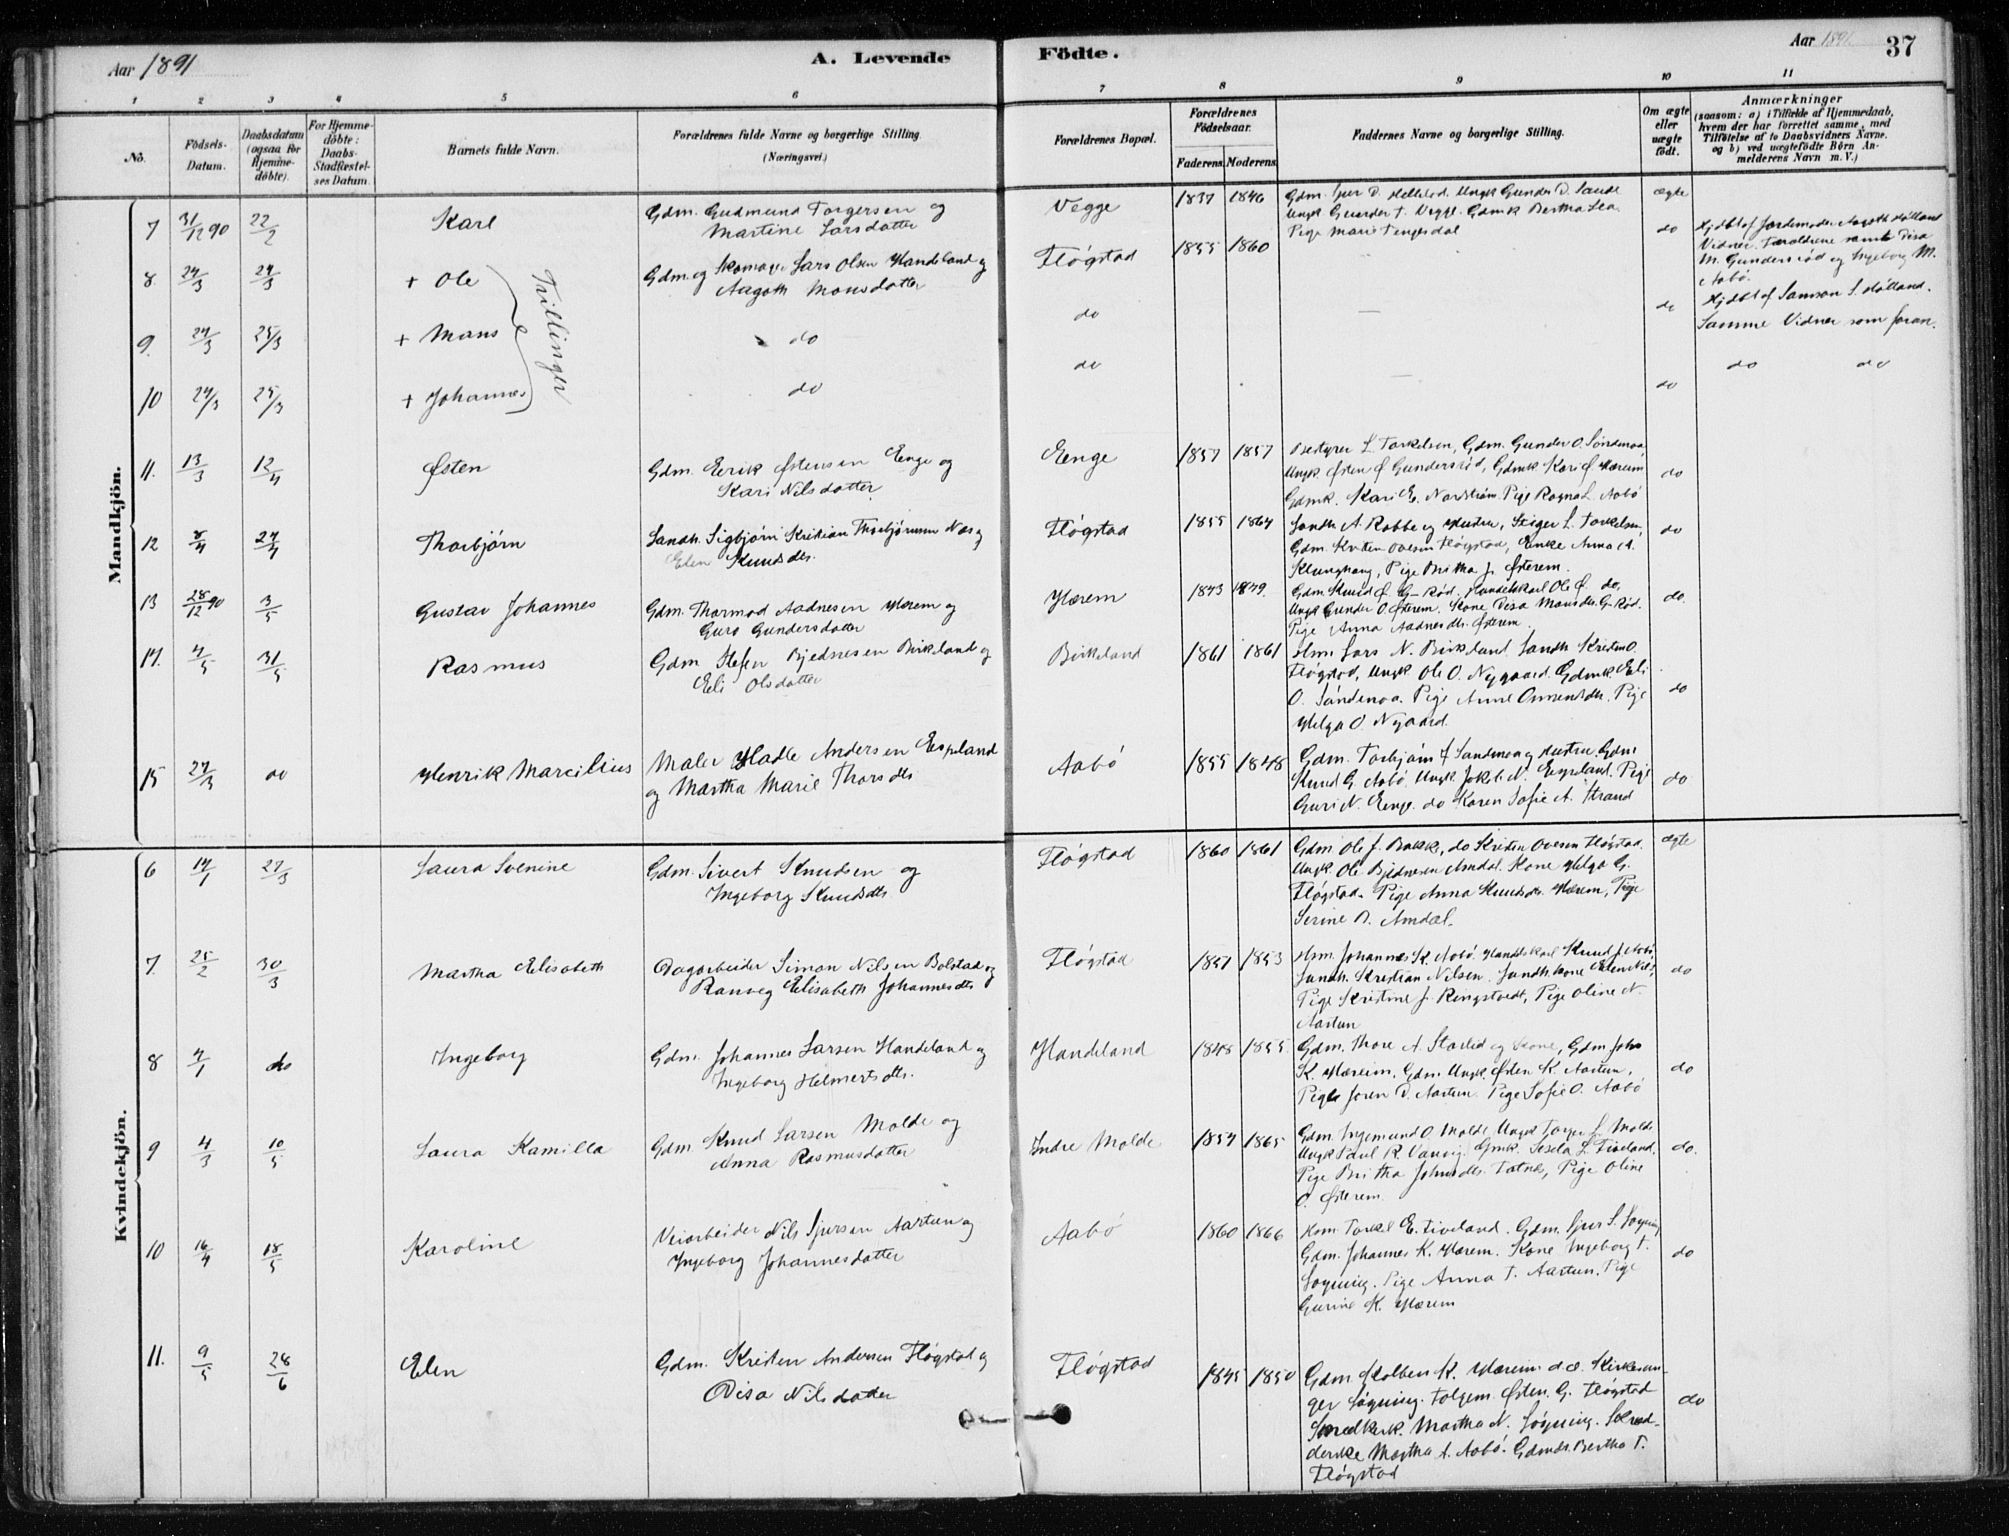 Aar 1891
A. Levende
Fødte.
Aar 1891
37
1 2 3 4 5 6 7 8 9 10 11
No.
Födsels-
Datum.
Daabsdatum
(ogsaa for
Hjemme-
döbte).
For Hjemme-
döbte:
Daabs-
Stadfæstel-
ses Datum.
Barnets fulde Navn.
Forældrenes fulde Navne og borgerlige Stilling.
(Næringsvei.)
Forældrenes Bopæl.
Forældrenes
Födselsaar.
Faderens. Moderens.
Faddernes Navne og borgerlige Stilling.
Om ægte
eller
uægte
födt.
Anmærkninger
(saasom: a) i Tilfælde af Hjemmedaab,
hvem der har forrettet samme, med
Tilföielse af to Daabsvidners Navne.
og b) ved uægtefödte Börn An-
melderens Navn m. V.)
Mandkjön.
7 31/12 90 22/2 Karl
Gdm. Gudmund Torgersen og
Martine Larsdatter
Vegge 1837 1846
Ungk Gunder T. Vegge. Gdmk Bertha
Pige Marie Tengesdal
ægte
8. 24/3 24/3 + Ole
Trillinger
Gdm. og Skomager Lars Olsen Handeland og
Aagoth Monsdatter
Fløgstad 1855 1860
do
Hjdbt af Jordemoder Aagoth Høiland
Vidner Forældrene samt Disa
M. Gundersrød og Ingeborg M.
Aabø.
9. 24/3 25/3 + Mans
do
do
—
do
Hjdbt af Samson S. Høiland.
Samme Vidner som foran.
10 24/3 25/3 + Johannes
do
do
—
do
do do
11. 13/3 12/4 Østen
Gdm. Eerik Østensen Enge og
Kari Nilsdatter
Eenge 1857 1857
Bestyrer L. Torkelsen, Gdm. Gunder O. Søndenaa,
Ungk. Østen Ø Gundersrød, Gdmk Kari Ø. Hærem
Gdmk. Kari E. Nordstrøm. Pige Ragna L. Aabø
do
12 8/4 24/4 Thorbjørn
Sandh. Sigbjørn Kristian Thorbjørnsen Næs og
Elen Knudsdtr.
Fløgstad 1855 1864
Sandh A. Robbe og Hustru, Stiger L. Torkelsen,
Gdm. Kristen Ovesen Fløgstad, Enke Anna A.
Klunghaug, Pige Britha J. Østerem.
do
13 28/12 90 3/5 Gustav Johannes
Gdm. Thormod Aadnesen Hærem og
Guro Gundersdatter
Hærem 1843 1849
Gdm. Knud Ø. G-Rød. Handelskarl Ole Ø. do,
Ungk Gunder O. Østerem. Kone Disa Monsdtr. G-Rød.
Pige Anna Aadnesdtr. Østerem.
do.
14. 4/5 31/5 Rasmus
Gdm. Stefen Bjednesen Birkeland og
Eeli Olsdatter
Birkeland 1861 1861
Hm. Lars N. Birkeland Sandh Kristen O.
Fløgstad, Ungk Ole O. Nygaard. Gdmk. Eeli
O. Søndenaa. Pige Anne Omundsdtr. Pige
Helga O. Nygaard
do
15 27/3 do Henrik Marcilius
Maler Hadle Andersen Espeland
og Martha Marie Thorsdtr
Aabø 1855 1848
Gdm. Torbjørn T. Sandmoen og Hustru. Gdm
Knud G. Aabø. Ungk Jakob N. Espeland. Pige
Guri N. Enge. do Karen Sofie A. Strand
do
Kvindekjön.
6 14/1 27/3 Laura Svenine
Gdm. Sivert Knudsen og
Ingeborg Knudsdtr.
Fløgstad 1860 1861
Gdm. Ole J. Bakke, do Kristen Ovesen Fløgstad.
Ungk. Ole Bjednesen Amdal. Kone Helga G.
Fløgstad. Pige Anna Knudsdtr. Hærem, Pige
Serine B. Amdal.
ægte
7. 25/2 30/3 Martha Elisabeth
Dagarbeider Simon Nilsen Bolstad og
Ranveg Elisabeth Johannesdtr
Fløgstad 1851 1853
Hm. Johannes K. Aabø. Handelskarl Knud J. Aabø,
Sandh. Kristian Nilsen. Sandh kone Elen Nils.
Pige Kristine J. Ringstvedt, Pige Oline N.
Aartun
do
8 4/1 do Ingeborg
Gdm. Johannes Larsen Handeland og
Ingeborg Helmertsdtr.
Handeland 1848 1855
Gdm. Thore A. Stølid og Kone, Gdm John
K. Hæreim, Gdm. Ungk. Østen K. Aartun,
Pige Joren D. Aartun. Pige Sofie O. Aabø
do
9 4/3 10/5 Laura Kamilla
Gdm Knud Larsen Molde og
Anna Rasmusdatter
Indre Molde 1857 1865
Gdm. Ingemund O. Molde, Ungk Torger L. Molde
Ungk Paul R. Vanvig. Gmk. Sesela L. Tiveland,
Pige Britha Johnsdtr. Tøtnes, Pige Oline
O. Østerem.
do.
10 16/4 18/5 Karoline
Veiarbeider Nils Sjursen Aartun og
Ingeborg Johannesdatter
Aabø 1860 1866
Hm. Torkel E. Tiveland. Gdm. Sjur S. Søgning
Gdm. Johannes K. Hærem. Kone Ingeborg T.
Søgning. Pige Anna T. Aartun. Pige
Gurine K. Hærem
do
11. 9/5 28/6 Elen
Gdm. Kristen Andersen Fløgstad og
Disa Nilsdatter
Fløgstad 1845 1850
Gdm. Kolben K. Hærem do. Kirkesan-
ger Søgning. Folgem. Østen G. Fløgstad
Smedkuk. Martha N. Søgning.
Martha A. Aabø. Gdmdtr. Bertha T.
Fløgstad
do